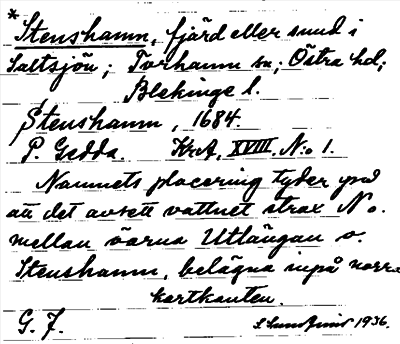 *Stenshamn, fjärd eller sund i
Saltsjön; Torhamn sn; Östra hd;
Blekinge l.
Stenshamn, 1684.
P. Gedda. KrA, XVIII. N:o 1.
Namnets placering tyder på
att det avsett vattnet strax N o.
mellan öarna Utlängan o.
Stenshamn, belägna inpå norra
kartkanten.
G. F. 1936.